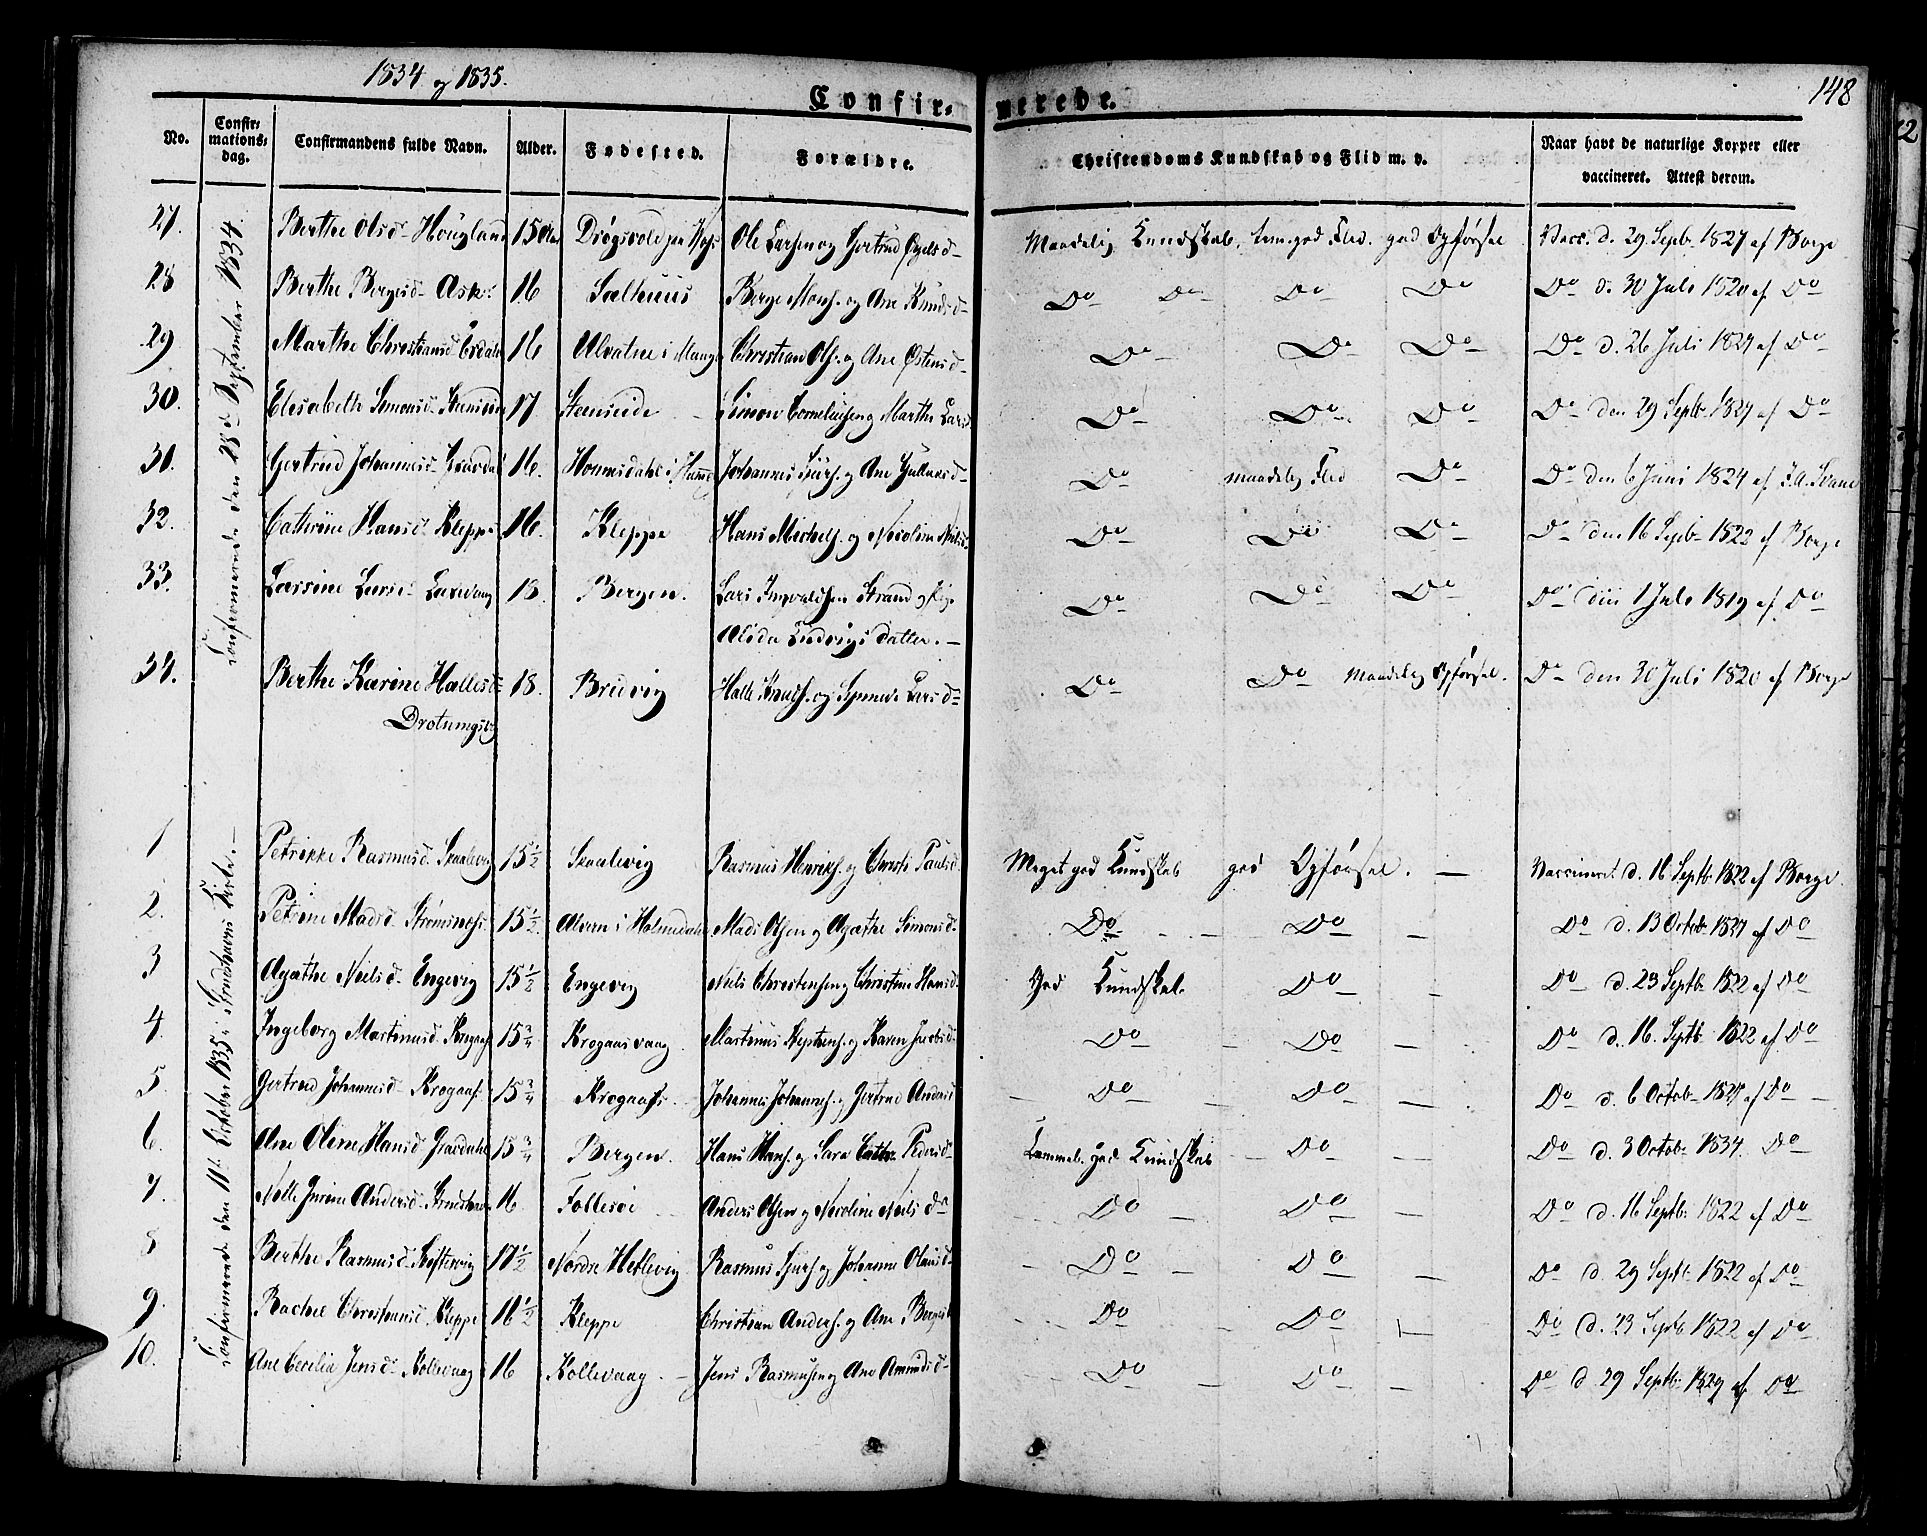 1834 og 1835.
Confirmerede.
148
No. Confirmationsdag. Confirmandens fulde Navn. Alder. Fødested. Forældre. Christendoms Kundskab og Flid m. v. Naar havt de naturlige Kopper eller vaccineret. Attest derom.
Confirmerede den 28de September 1834.
27. Berthe Olsd. Hougland 15 Ole Larsen og Gertrud Maadelig Kundskab, tem. god Flid. god Opførsel Vacc. d. 29 Septb. 1827 af Borge
28 Berthe Bergesd. Ask. 16 Salhuus Berge Mons. og Ane Knudsd. Do Do Do Do Do d. 30 Juli 1820 af Do
29 Marthe Christiansd. 16 Alvatne i Manger Christian Ols. og Ane Østensd. Do Do Do Do d. 26 Juli 1827 af Do
30. Elisabeth Simonsd. Steenseide 17 Steenseide Simon Corneliusen og Marthe Larsd. Do Do Do Do den 29 Septb. 1827 af Do
31. Gertrud Johannesd. 16. i Hammer Johannes og Ane Do maadelig Flid Do Do den 6 Juni 1824 af
32. Cathrine Hansd. Kleppe 16. Kleppe Hans Michels. og Nicoline Nielsd. Do Do Do Do den 16 Septb. 1822 af Borge
33. Larsine Larsd. Laxevaag 18. Bergen. Lars Strand og Pige Do Do Do Do den 1 Juli 1819 af Do
Alida Ludvigs datter.
34. Berthe Karine Hallesd. 18. Bruvig Halle Knuds. og Synneve Larsd. Do Do Maadelig Opførsel. Do den 30 Juli 1820 af Borge
Drotningsvig
Confirmerede den 11te October 1835 i Strudshavns Kirke.
1 Petrikke Rasmusd. Skaalevig 15 1/2 Skaalevig Rasmus Henriks. og Christi Paulsd. Meget god Kundskab god Opførsel. Vaccineret d. 16 Septb. 1822 af Borge.
2. Petrine Madsd. Strømsnes 15 1/2 Alveren i Holmedal Mads Olsen og Agathe Simonsd. Do Do Do d. 13 Octob. 1827 af Do
3 Agathe Nielsd. Engevig 15 1/2 Engevig Niels Christensen og Christine Hansd. God Kundskab. Do Do d. 23 Septb. 1822 af Do
4. Ingeborg Martinusd. Krogaas 15 3/4 Krogaasvaag Martinus og Karen Jacobsd. Do Do Do d. 16. Septb. 1822 af Do
5. Gertrud Johannesd. Krogaas. 15 3/4 Krogaas. Johannes Johannes. og Gertrud Andersd. Do Do Do d. 6 Octob. 1827 af Do
6. Ane Oline Hansd. Gravdahl 15 3/4 Bergen. Hans Hans. og Sara Cathr. Pedersd. Temmel. god Kundskab Do Do d. 3 Octob. 1834. Do
7. Nille Jurine Andersd. Strudshavn 16 Follesøe Anders Olsen og Nicoline Nielsd. Do Do Do d. 16 Septb. 1822 af Do
8 Berthe Rasmusd. 17 1/2 Nordre Hetlevig Rasmus Sjurs. og Johanne Olausd. Do Do Do d. 29 Septb. 1822 af Do
9. Rachel Christiansd. Kleppe 16 1/2 Kleppe Christian Anders. og Ane Bergesd. Do Do Do d. 23 Septb. 1822 af Do
10. Ane Cecilia Jensd. Kollevaag 16 Kollevaag. Jens Rasmusen og Ane Amundsd. Do Do Do d. 29 Septb. 1829 af Do